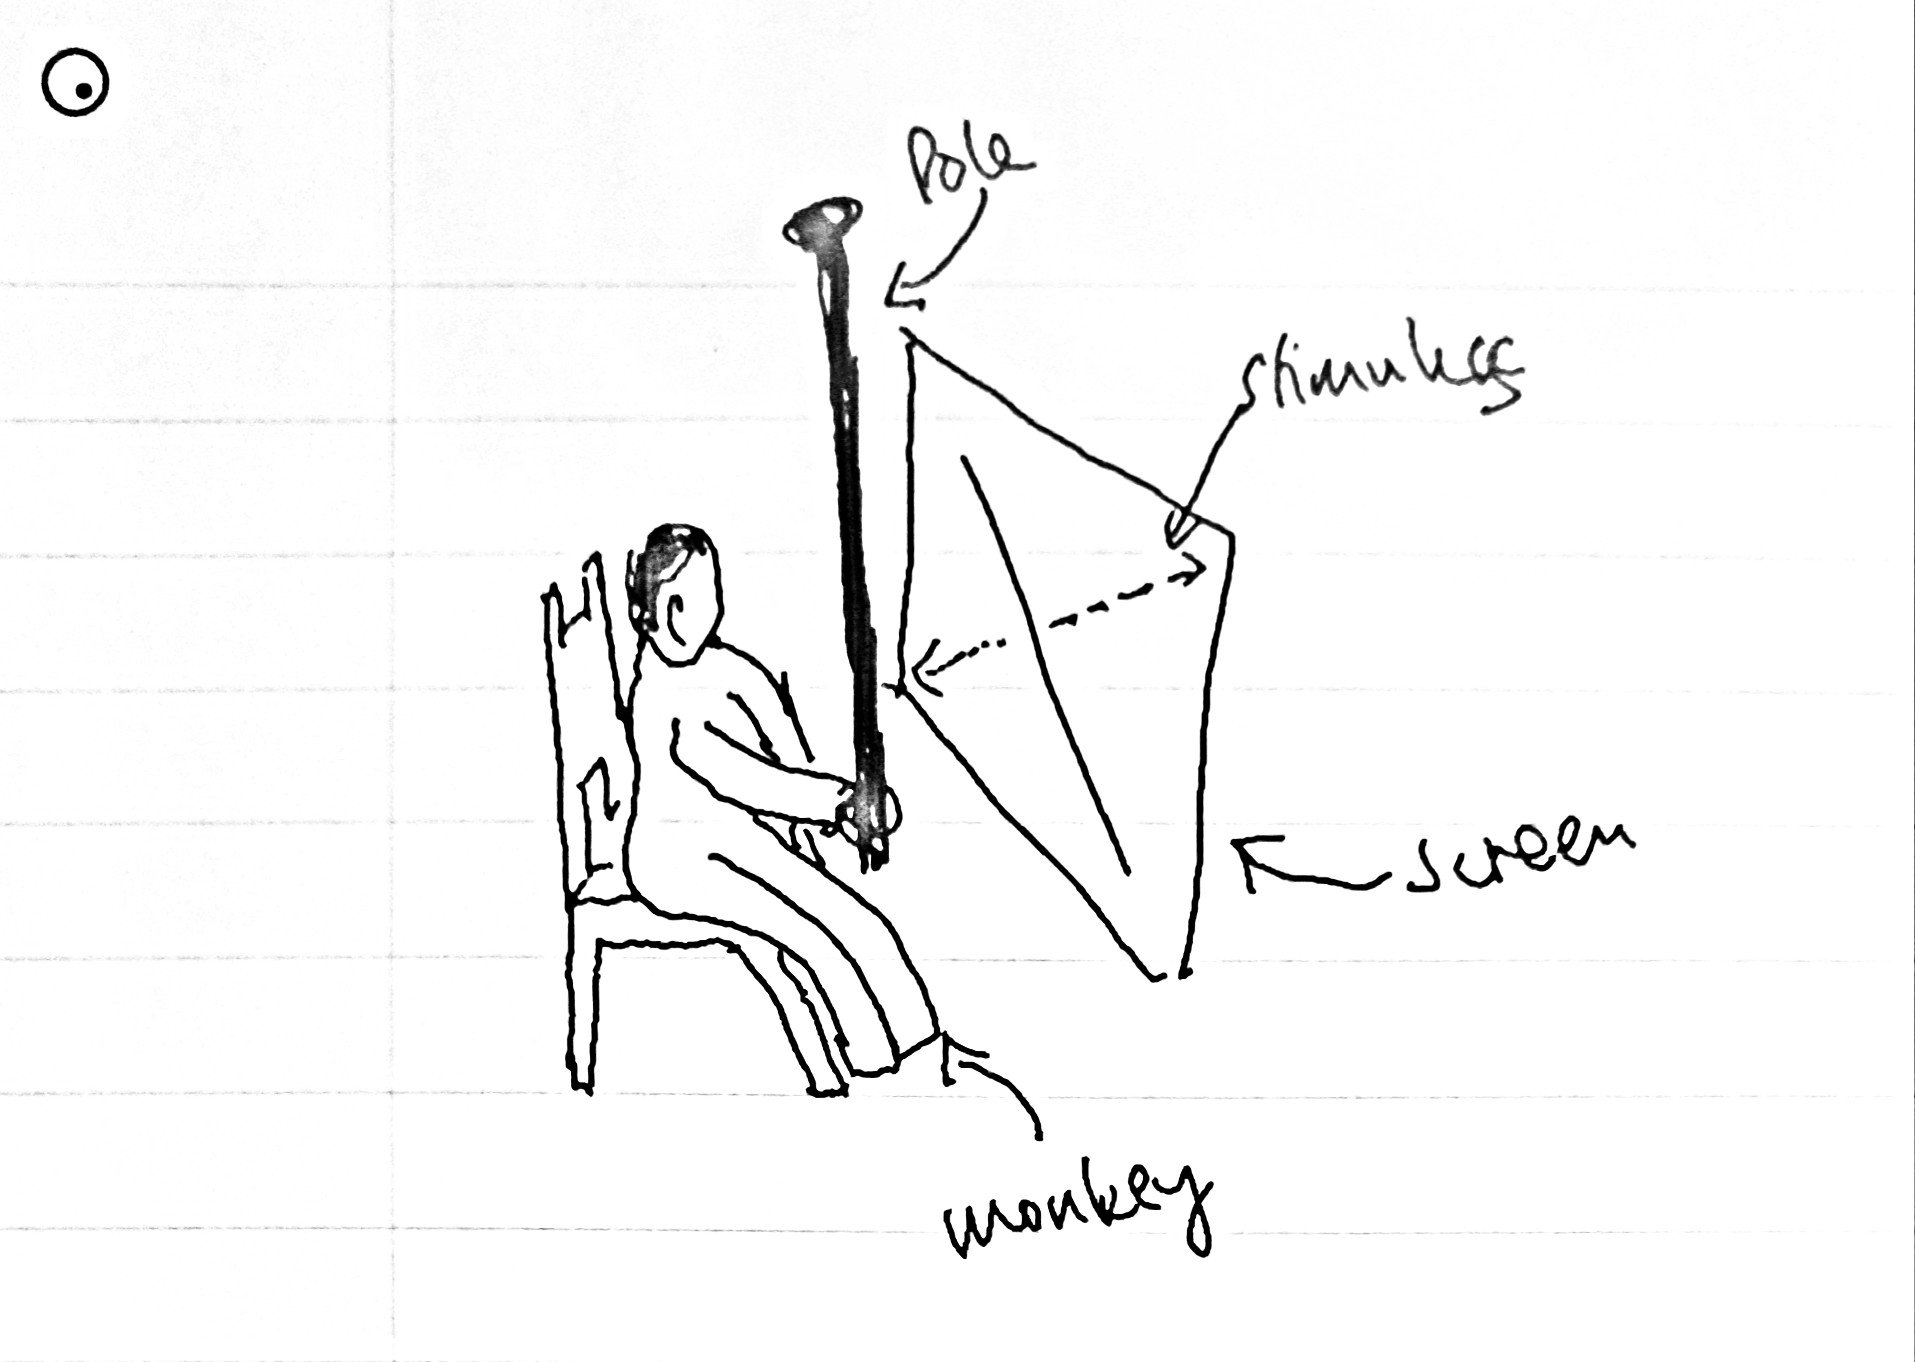 Pole
stimulus
screen
monkey